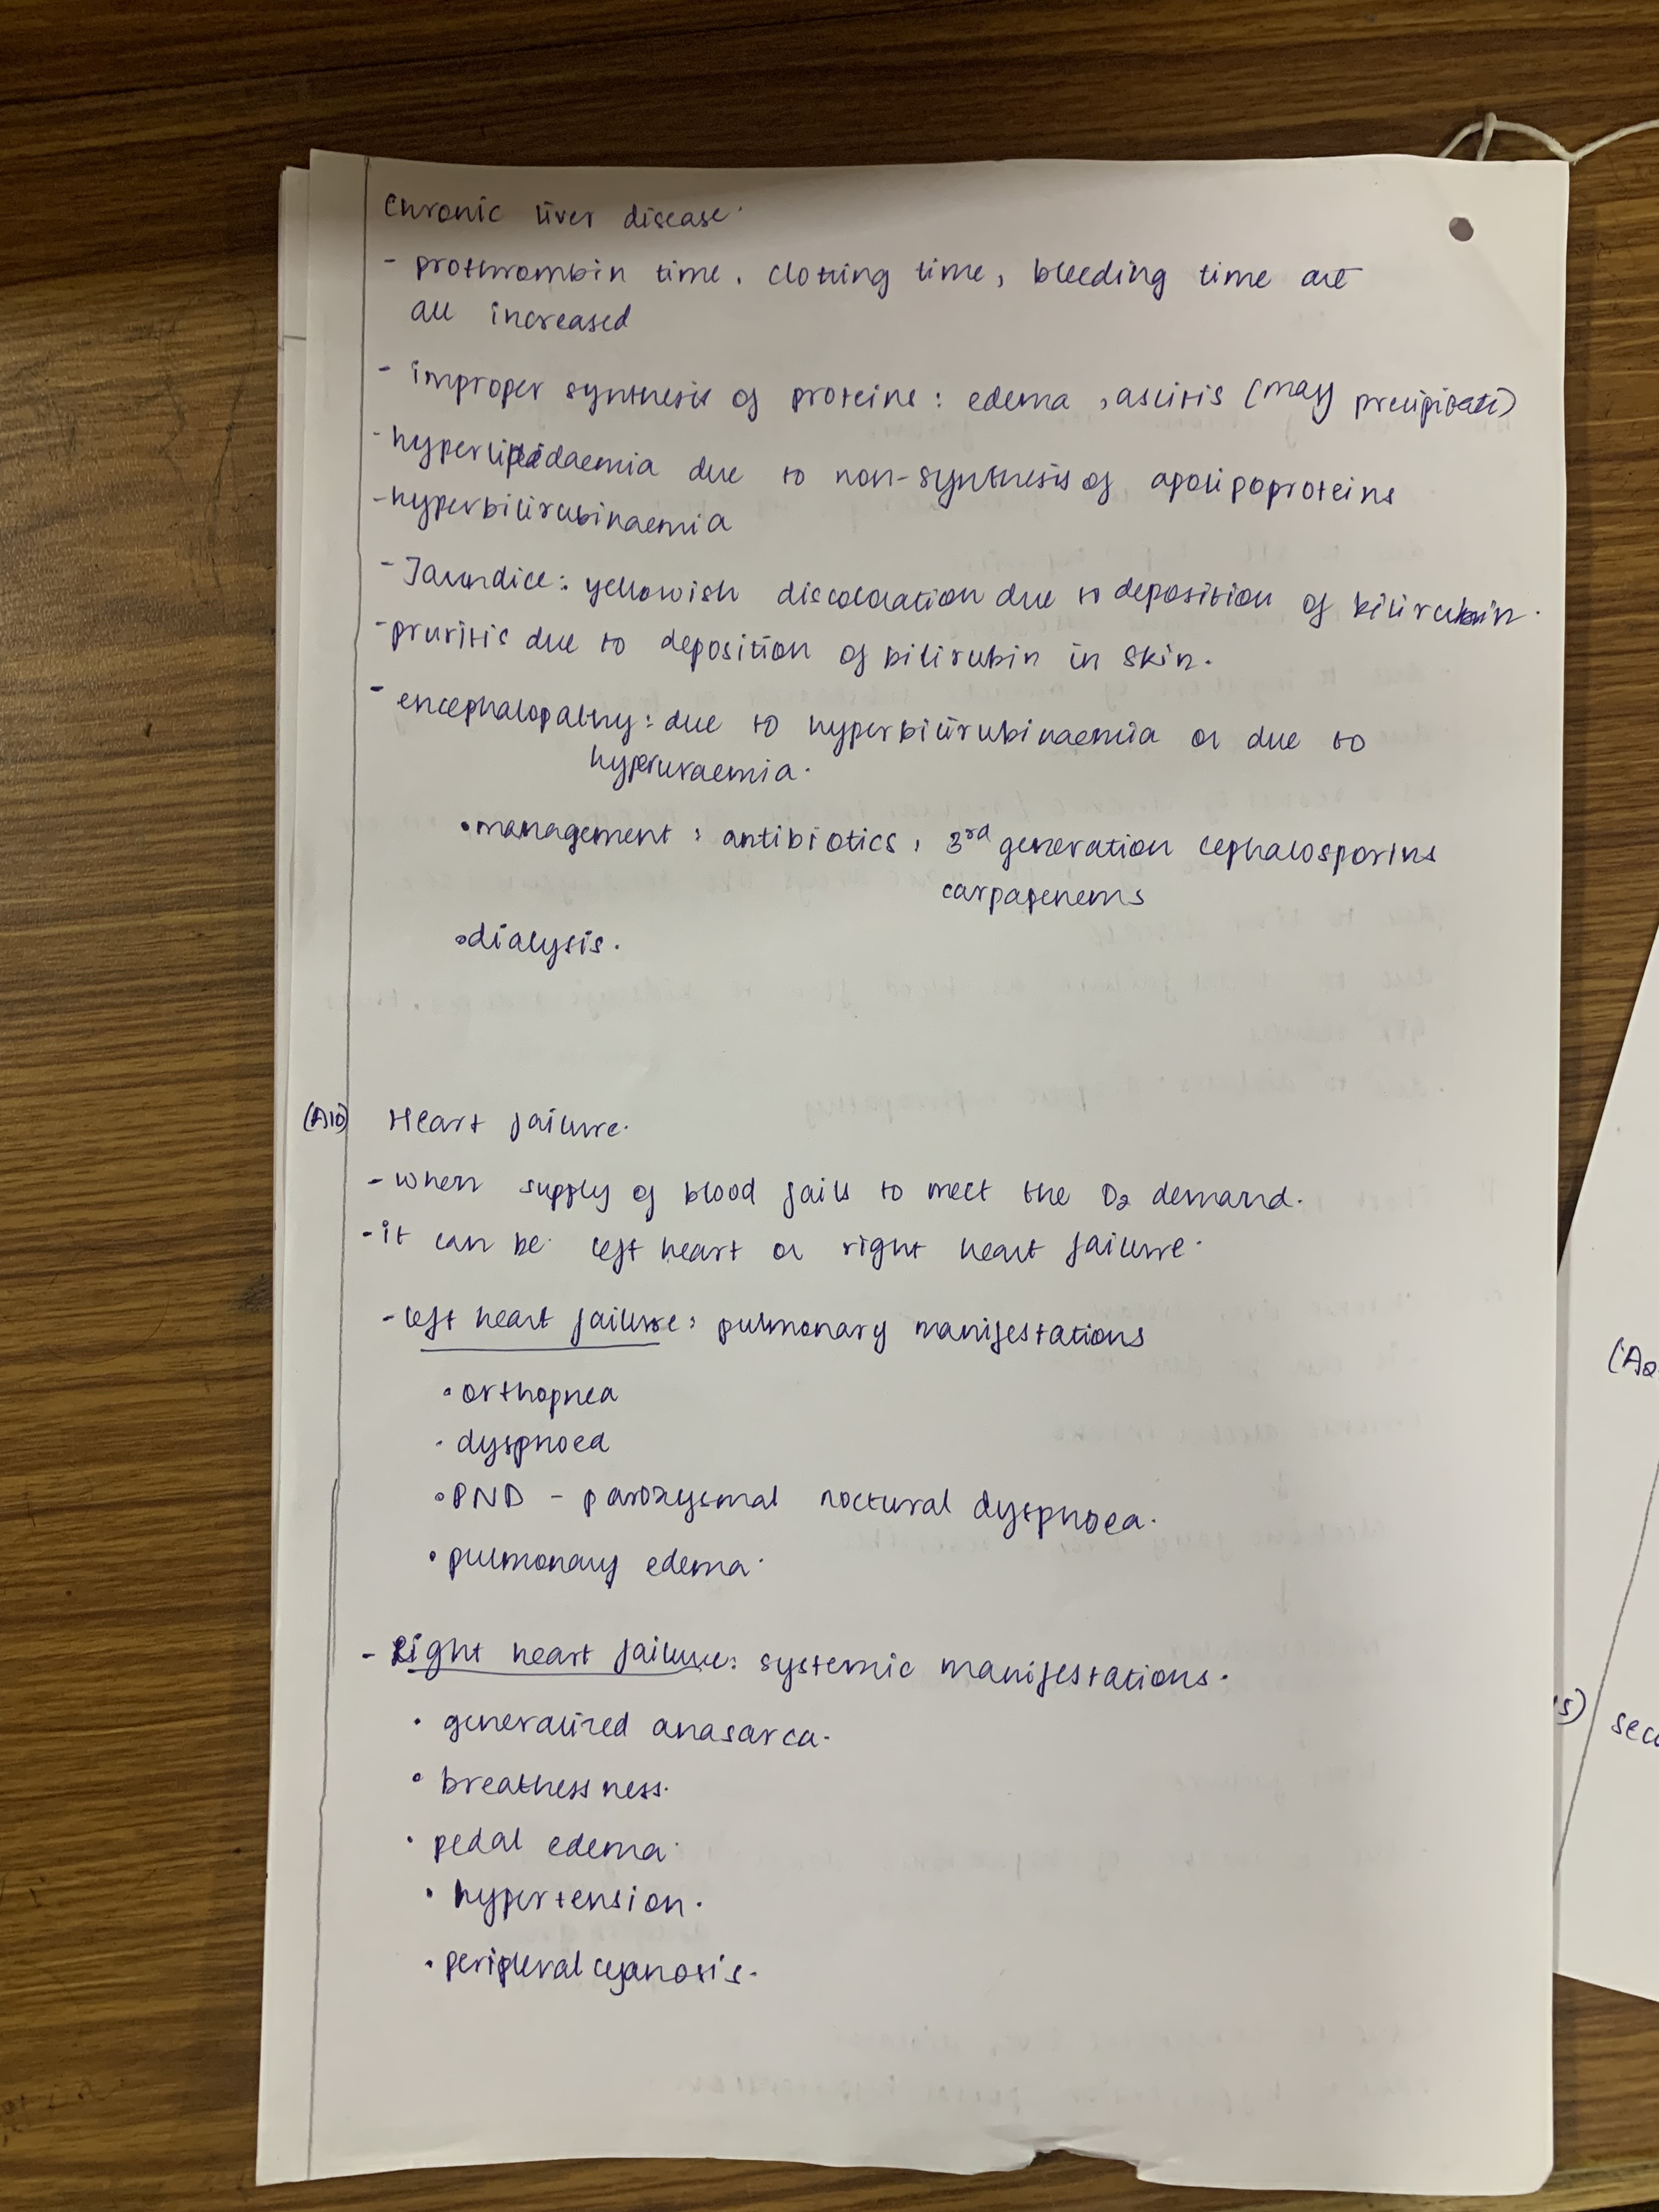 Chronic liver disease.
- prothrombin time, clotting time, bleeding time are
all increased
- improper synthesis of proteins: edema, ascitis (may precipitate)
- hyperlipidaemia due to non-synthesis of apolipoproteins
- hyperbilirubinaemia
- Jaundice: yellowish discolouration due to deposition of bilirubin.
- pruritis due to deposition of bilirubin in skin.
- encephalopathy: due to hyperbilirubinaemia or due to
hyperuraemia.
• management: antibiotics, 3rd generation cephalosporins
carpapenems
• dialysis.
(A10) Heart failure.
- when supply of blood fails to meet the O2 demand.
- it can be left heart or right heart failure.
- left heart failure: pulmonary manifestations
• orthopnea
• dyspnoea
• PND - paroxysmal noctural dyspnoea.
• pulmonary edema.
- Right heart failure: systemic manifestations.
• generalized anasarca.
• breathessness.
• pedal edema.
• hypertension.
• peripleral cyanosis.
(A2
5) sec